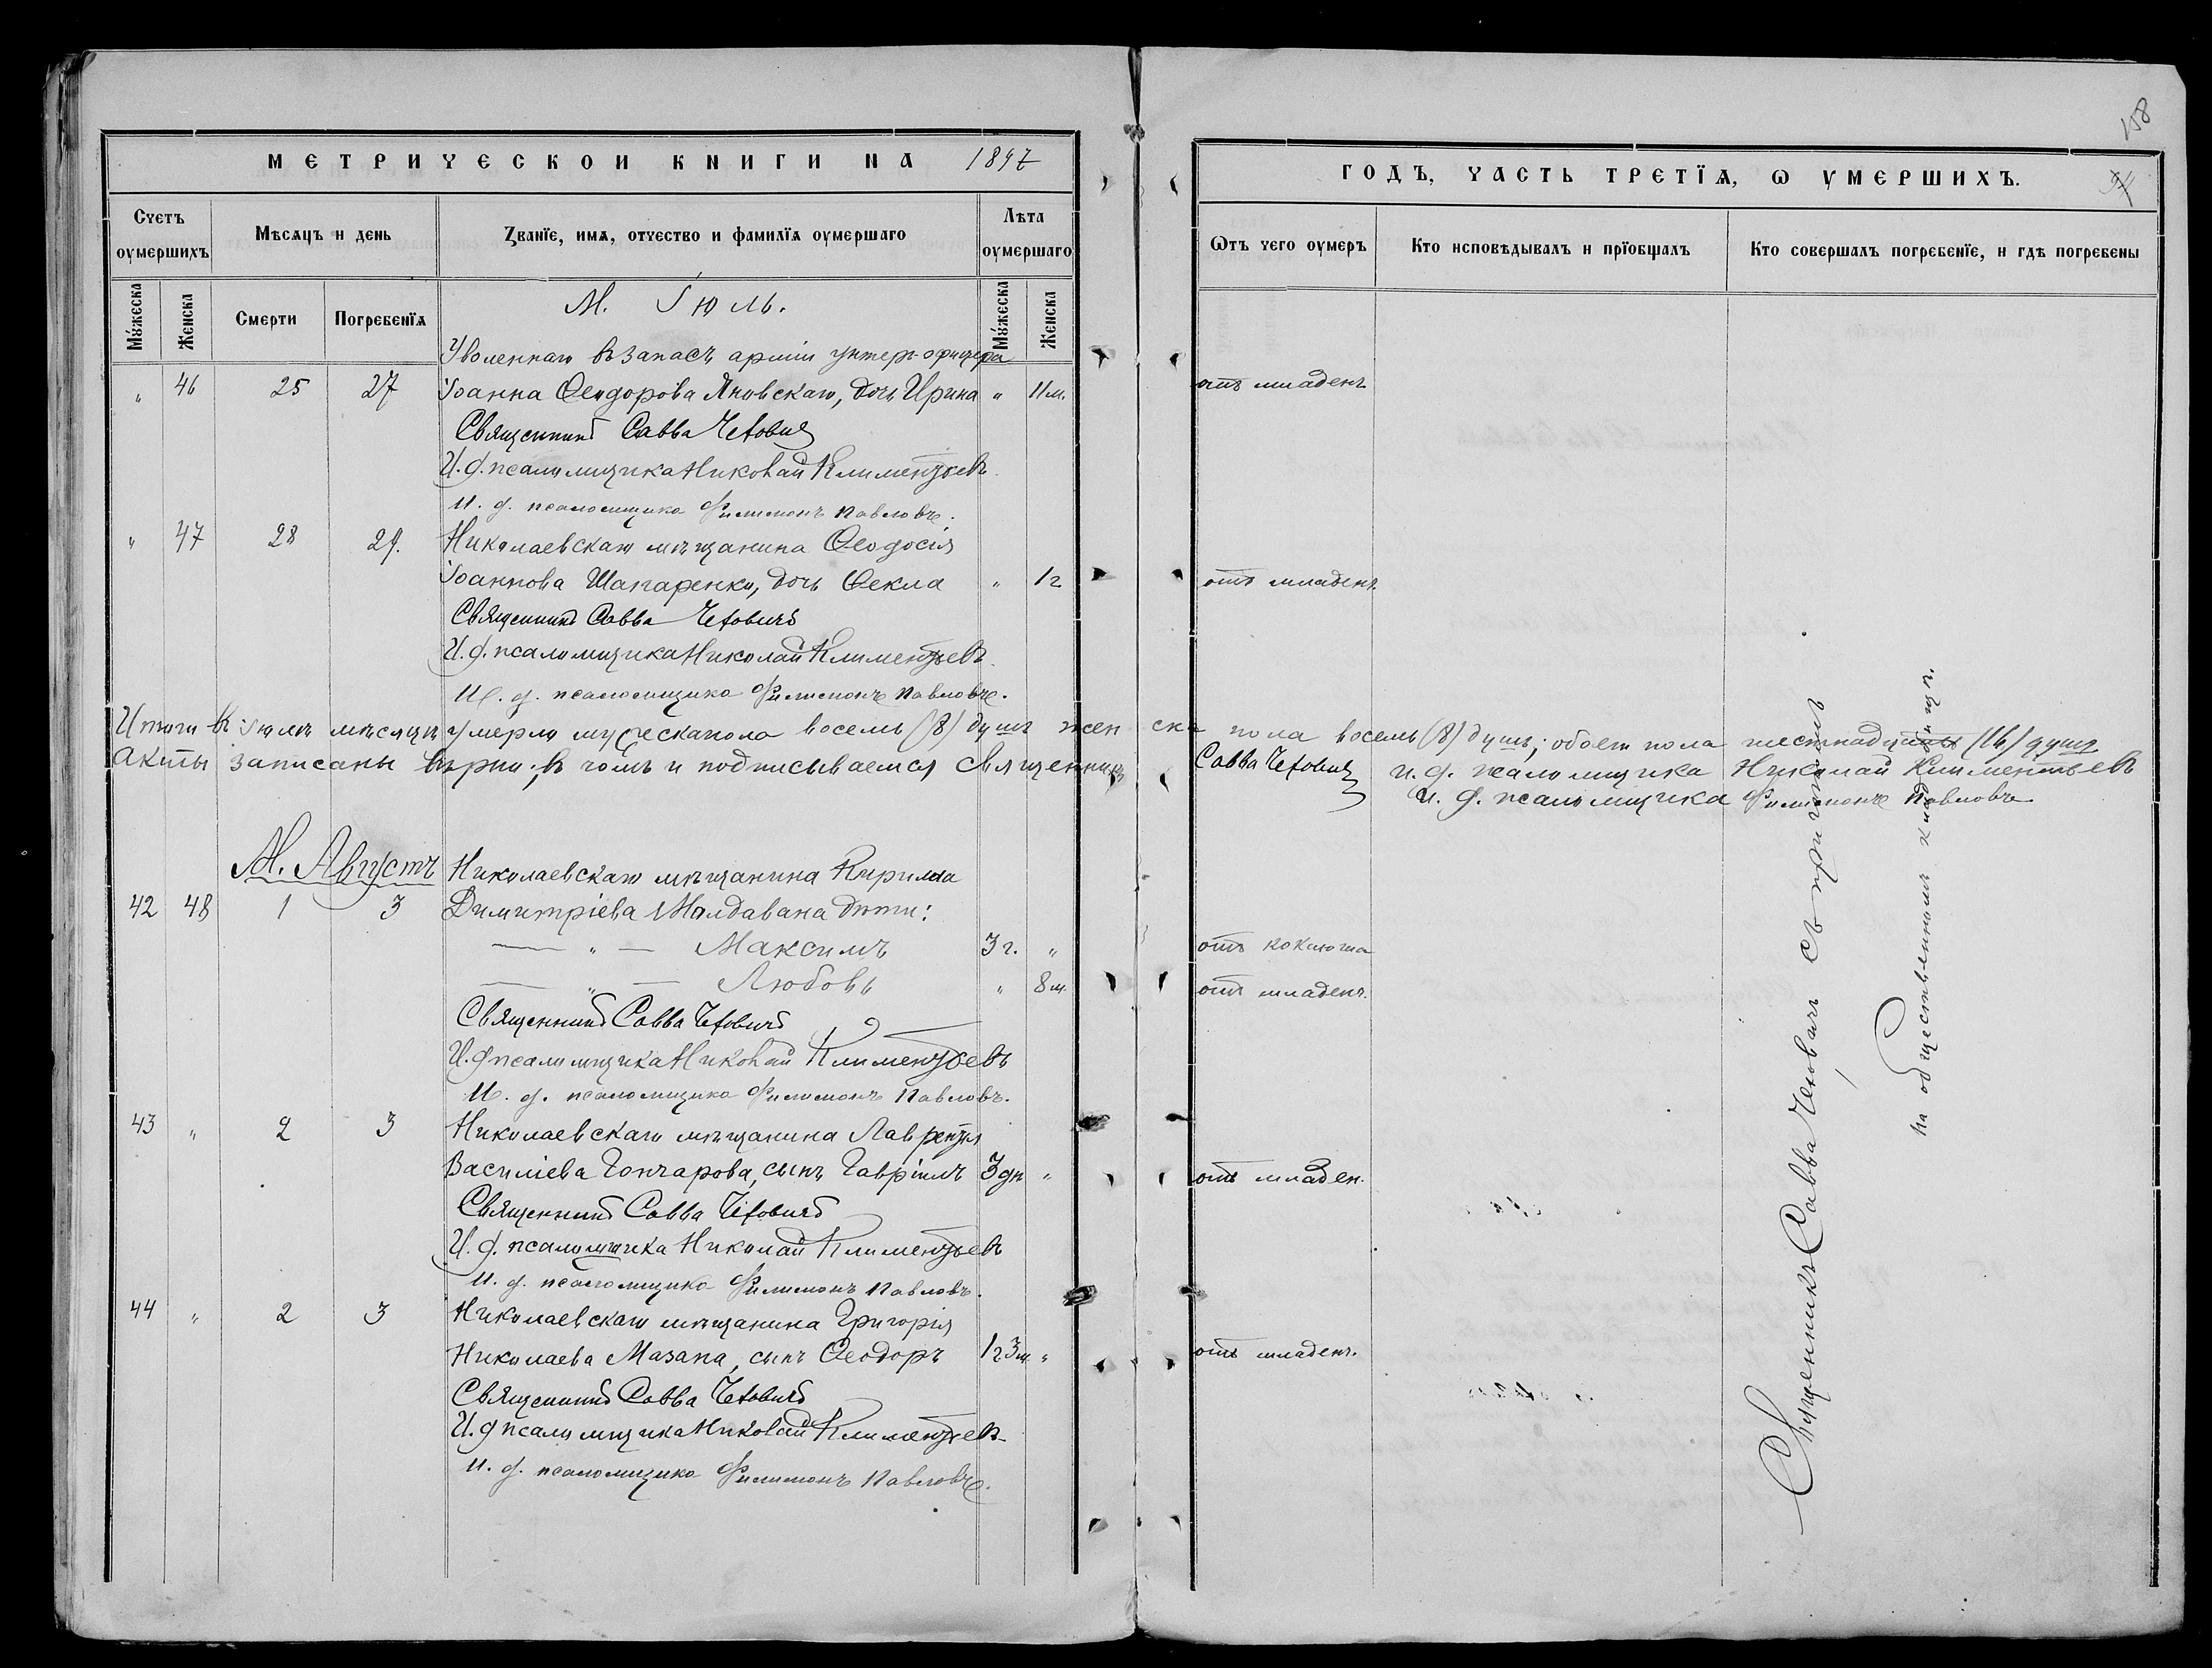 МЕТРИЧЕСКОЙ КНИГИ НА 1897
Счетъ оумершихъ
Мѣсяцъ и день
Званїе, имѧ, отчество и фамилїѧ оумершаго
Лѣта оумершаго
Мꙋжеска
Женска
Смерти
Погребенїѧ
Мꙋжеска
Женска
М. Іюль.
Уволеннаго въ запасъ арміи унтеръ-офицера
" 46 25 27 Іоанна Ѳеодорова Яновскаго, дочь Ирина " 11 м.
Священникъ Савва Чехович
И. д. псаломщика Николай Климентьевъ
И. д. псаломщика Филимонъ Павловъ.
" 47 28 29. Николаевскаго мѣщанина Ѳеодосія
Іоаннова Шапаренко, дочь Ѳекла " 1 г
Священникъ Савва Чеховичъ
И. д. псаломщика Николай Климентьевъ
И. д. псаломщика Филимонъ Павловъ.
Итого въ іюлѣ мѣсяцѣ умерло мужеска пола восемь (8) душъ жен
Акты записаны вѣрно; въ чемъ и подписываемся Священникъ
М. Августъ
Николаевскаго мѣщанина Кирилла
42 48 1 3 Димитріева Молдавана дѣти:
— " — Максимъ 3 г. "
— " — Любовь " 8 м
Священникъ Савва Чеховичъ
И. д. псаломщика Николай Климентьевъ
И. д. псаломщика Филимонъ Павловъ.
43 " 2 3 Николаевскаго мѣщанина Лаврентія
Василіева Гончарова, сынъ Гавріилъ 3 дн "
Священникъ Савва Чеховичъ
И. д. псаломщика Николай Климентьевъ
И. д. псаломщика Филимонъ Павловъ.
44 " 2 3 Николаевскаго мѣщанина Григорія
Николаева Мазана, сынъ Ѳеодоръ 1 г 3 м "
Священникъ Савва Чеховичъ
И. д. псаломщика Николай Климентьевъ
И. д. псаломщика Филимонъ Павловъ.
158
ГОДЪ, ЧАСТЬ ТРЕТЇѦ, Ѡ УМЕРШИХЪ.
Ѿтъ чего оумеръ
Кто исповѣдывалъ и прїобщалъ
Кто совершалъ погребенїе, и гдѣ погребены
отъ младен.
отъ младен.
ска пола восемь (8) душъ; обоего пола шестнадцать (16) душъ
Савва Чехович и. д. псаломщика Николай Климентьевъ
и. д. псаломщика Филимонъ Павловъ
отъ коклюша
отъ младенч.
отъ младен.
отъ младенч.
Священникъ Савва Чеховичъ съ причтомъ
на общественномъ кладбищѣ.